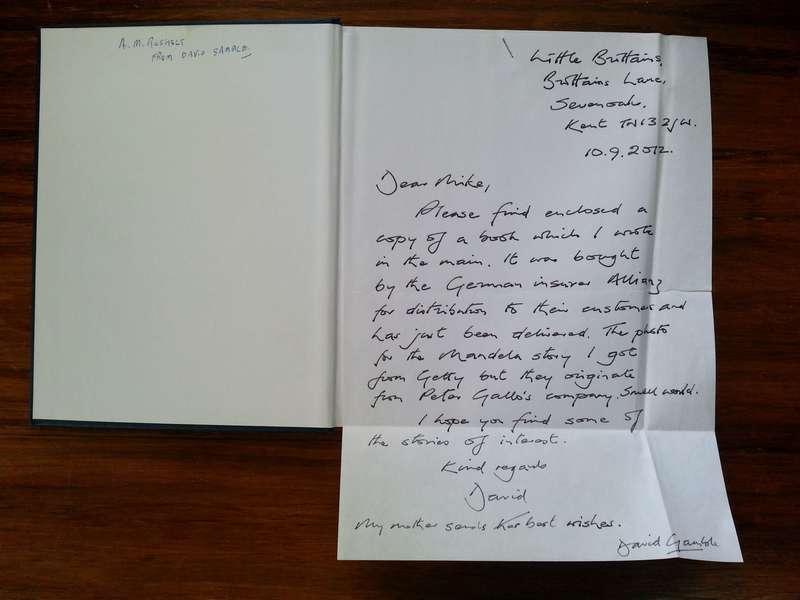 A. M. ROSHOLT
FROM DAVID GAMBLE
Little Brittains,
Brittains Lane,
Sevenoaks,
Kent TN13 2JW.
10.9.2012.
Dear Mike,
Please find enclosed a
copy of a book which I wrote
in the main. It was bought
by the German insurer Allianz
for distribution to their customers and
has just been delivered. The photo
for the Mandela story I got
from Getty but they originate
from Peter Gallo's company. Small world.
I hope you find some of
the stories of interest.
Kind regards
David
My mother sends her best wishes.
David Gamble